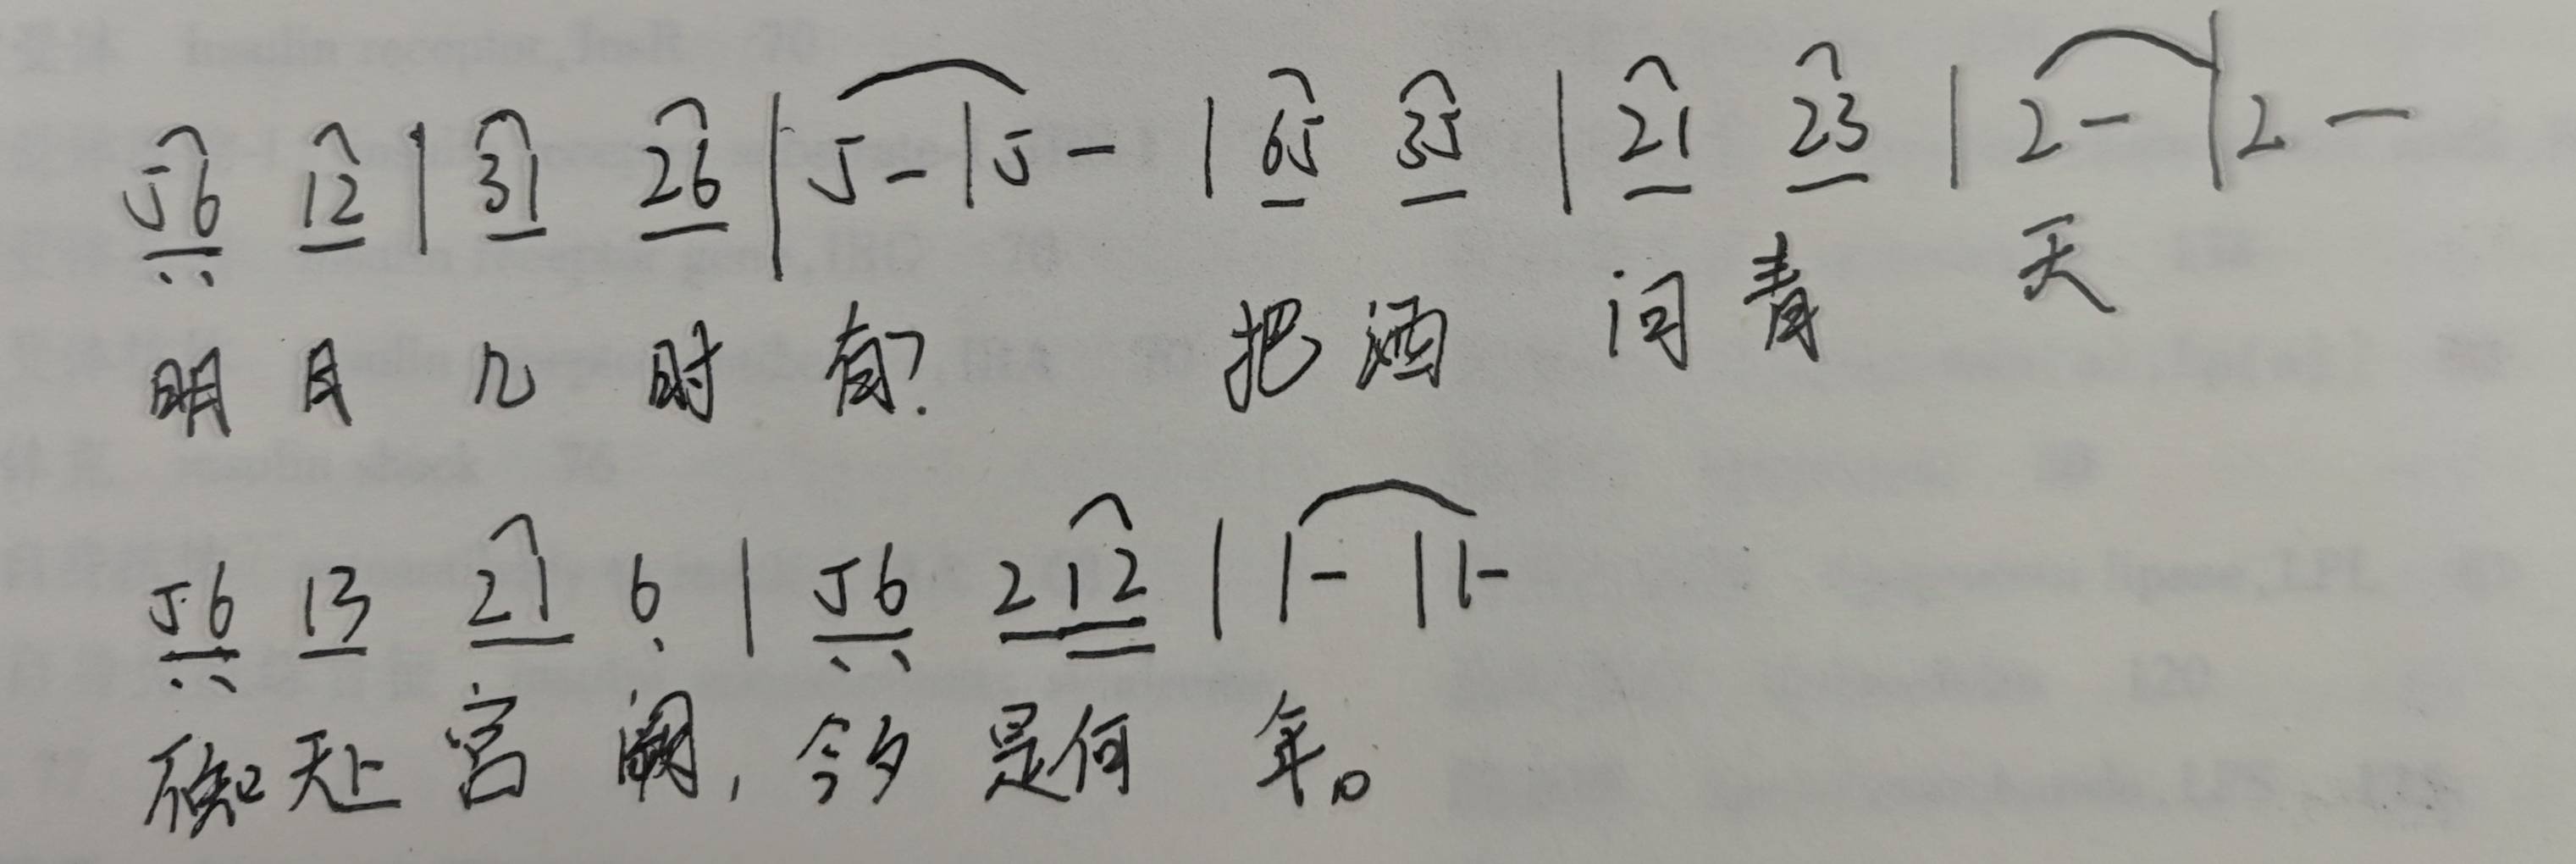 56 12 | 31 26 | 5 - | 5 - | 65 35 | 21 23 | 2 - | 2 -
明月几时有? 把酒问青天
56 13 21 6 | 56 212 | 1 - | 1 -
不知天上宫阙,今夕是何年。